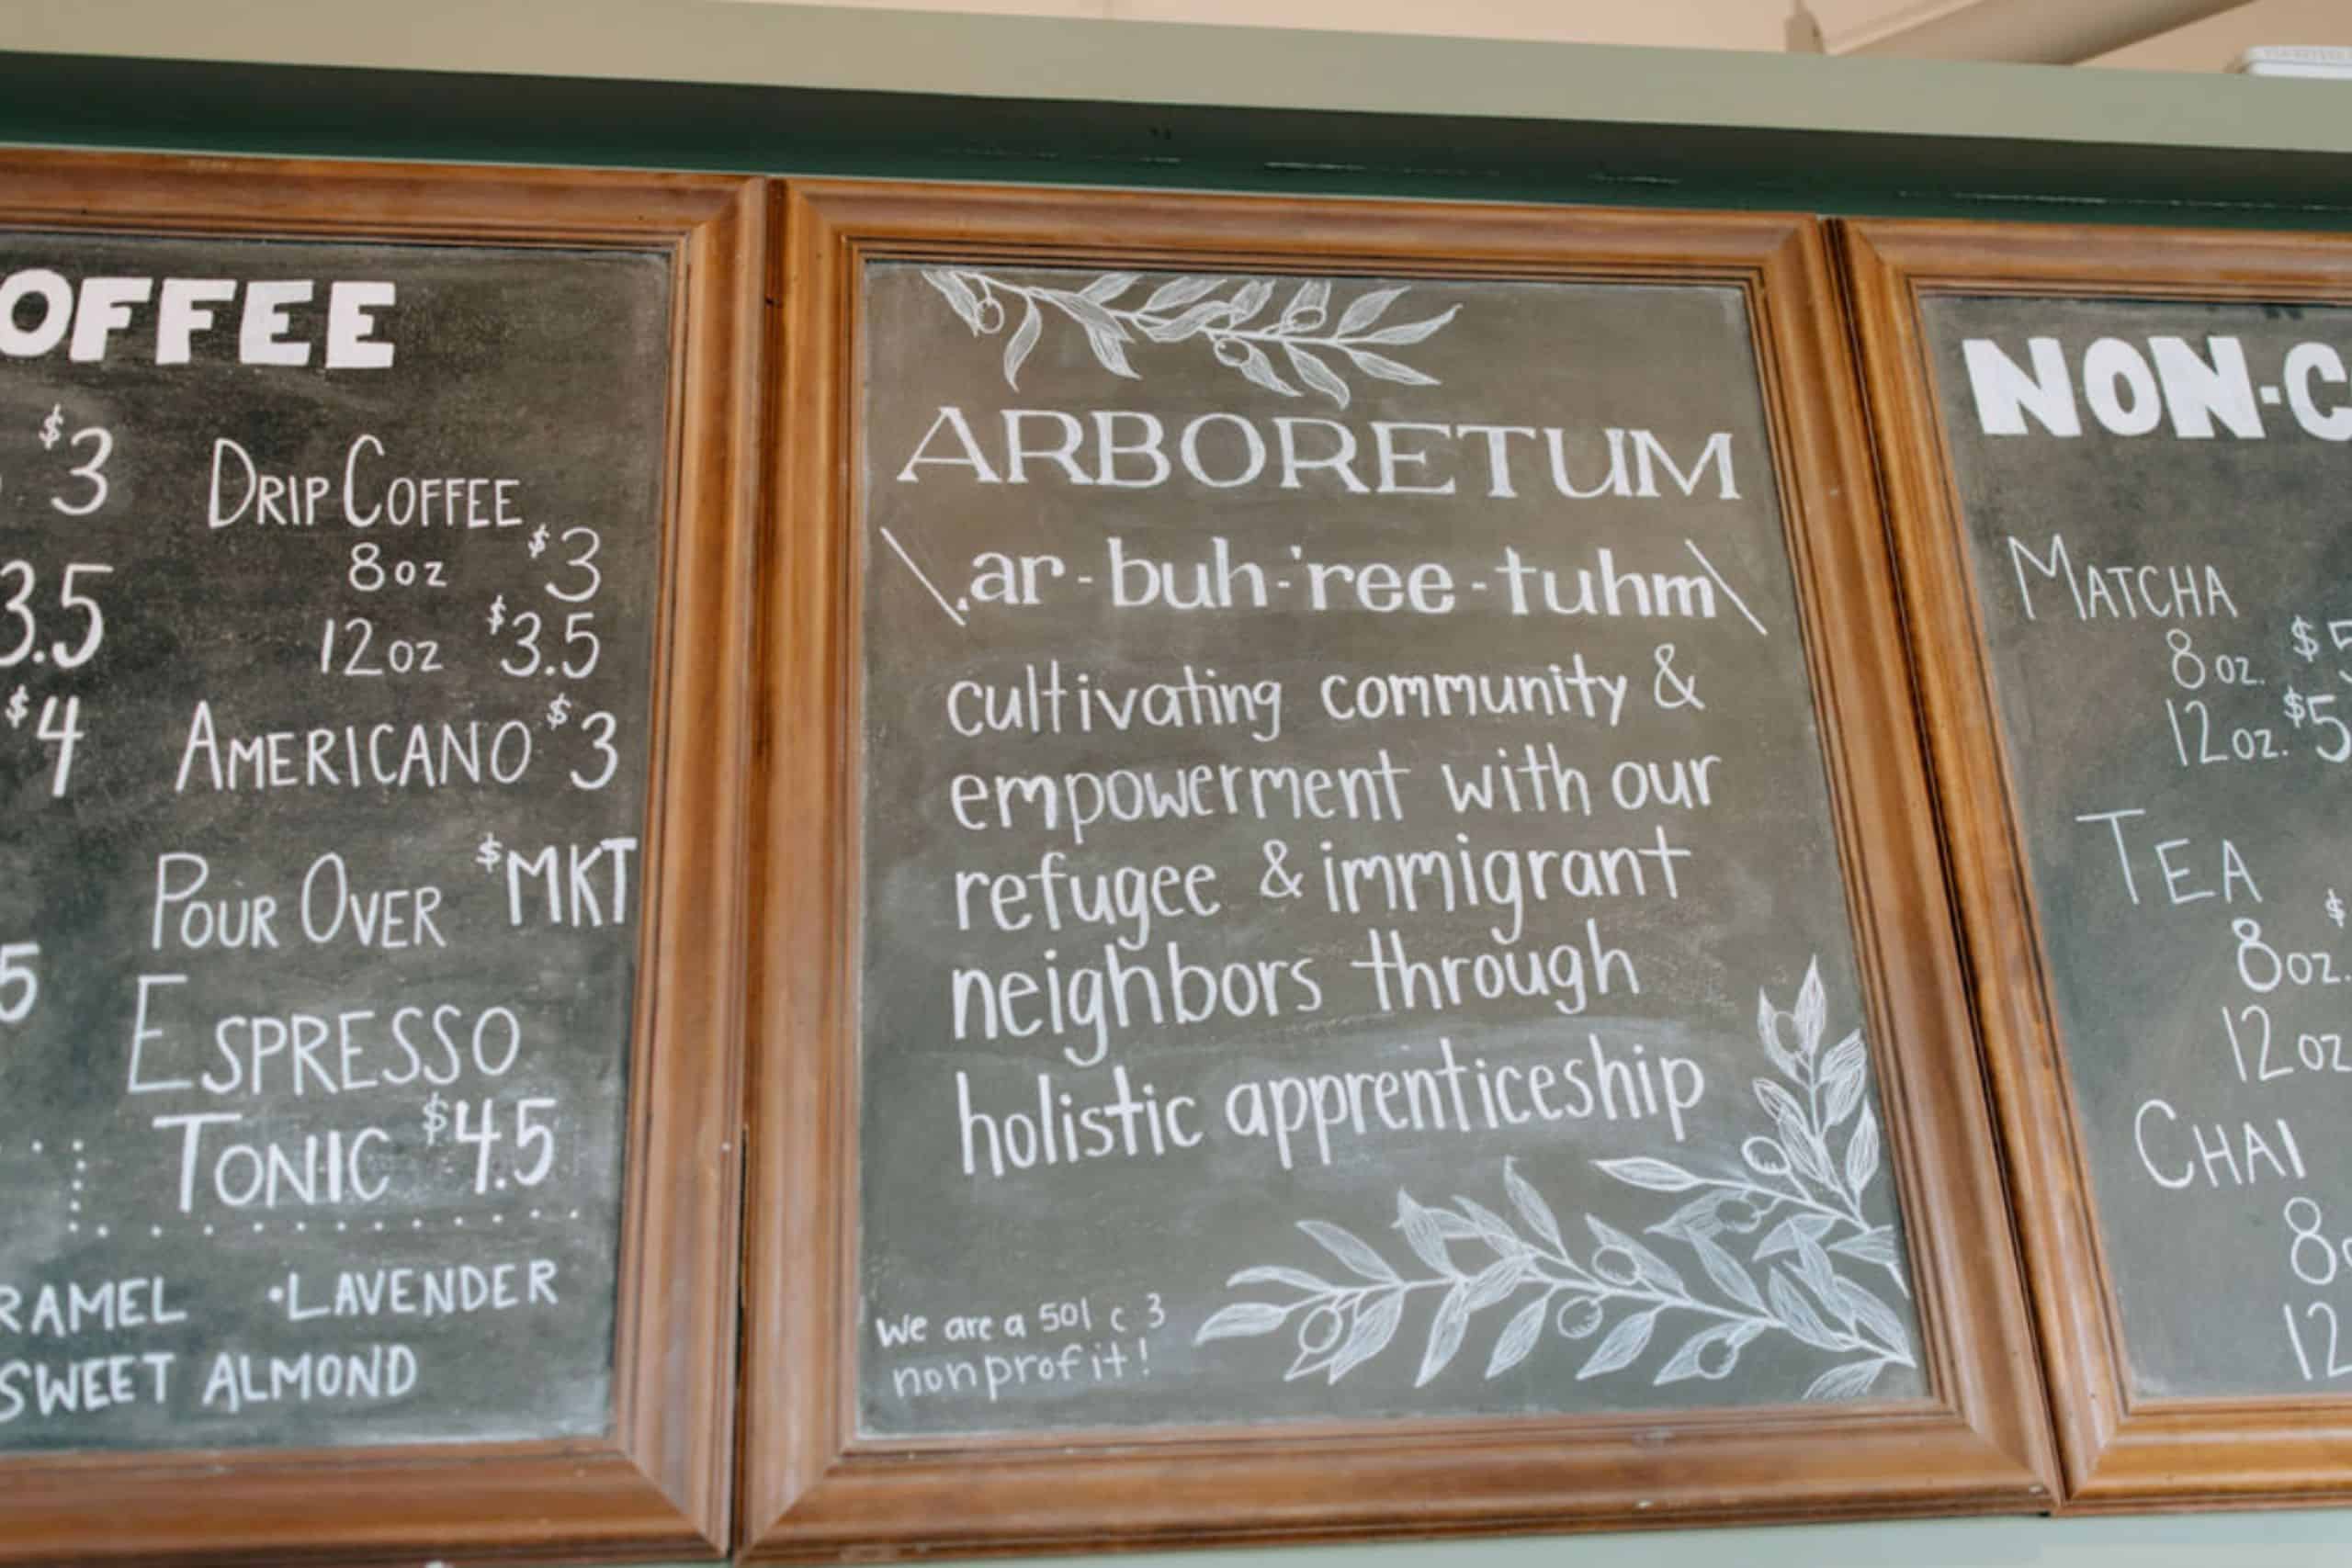 OFFEE
$3 DRIP COFFEE
8oz $3
3.5 12oz $3.5
$4 AMERICANO $3
POUR OVER $MKT
5 ESPRESSO
TONIC $4.5
RAMEL •LAVENDER
SWEET ALMOND
ARBORETUM
\ˌar-buh-ˈree-tuhm\
cultivating community &
empowerment with our
refugee & immigrant
neighbors through
holistic apprenticeship
We are a 501 c 3
nonprofit!
NON-C
MATCHA
8 oz. $5
12oz. $5
TEA
8oz. $
12oz
CHAI
8o
12